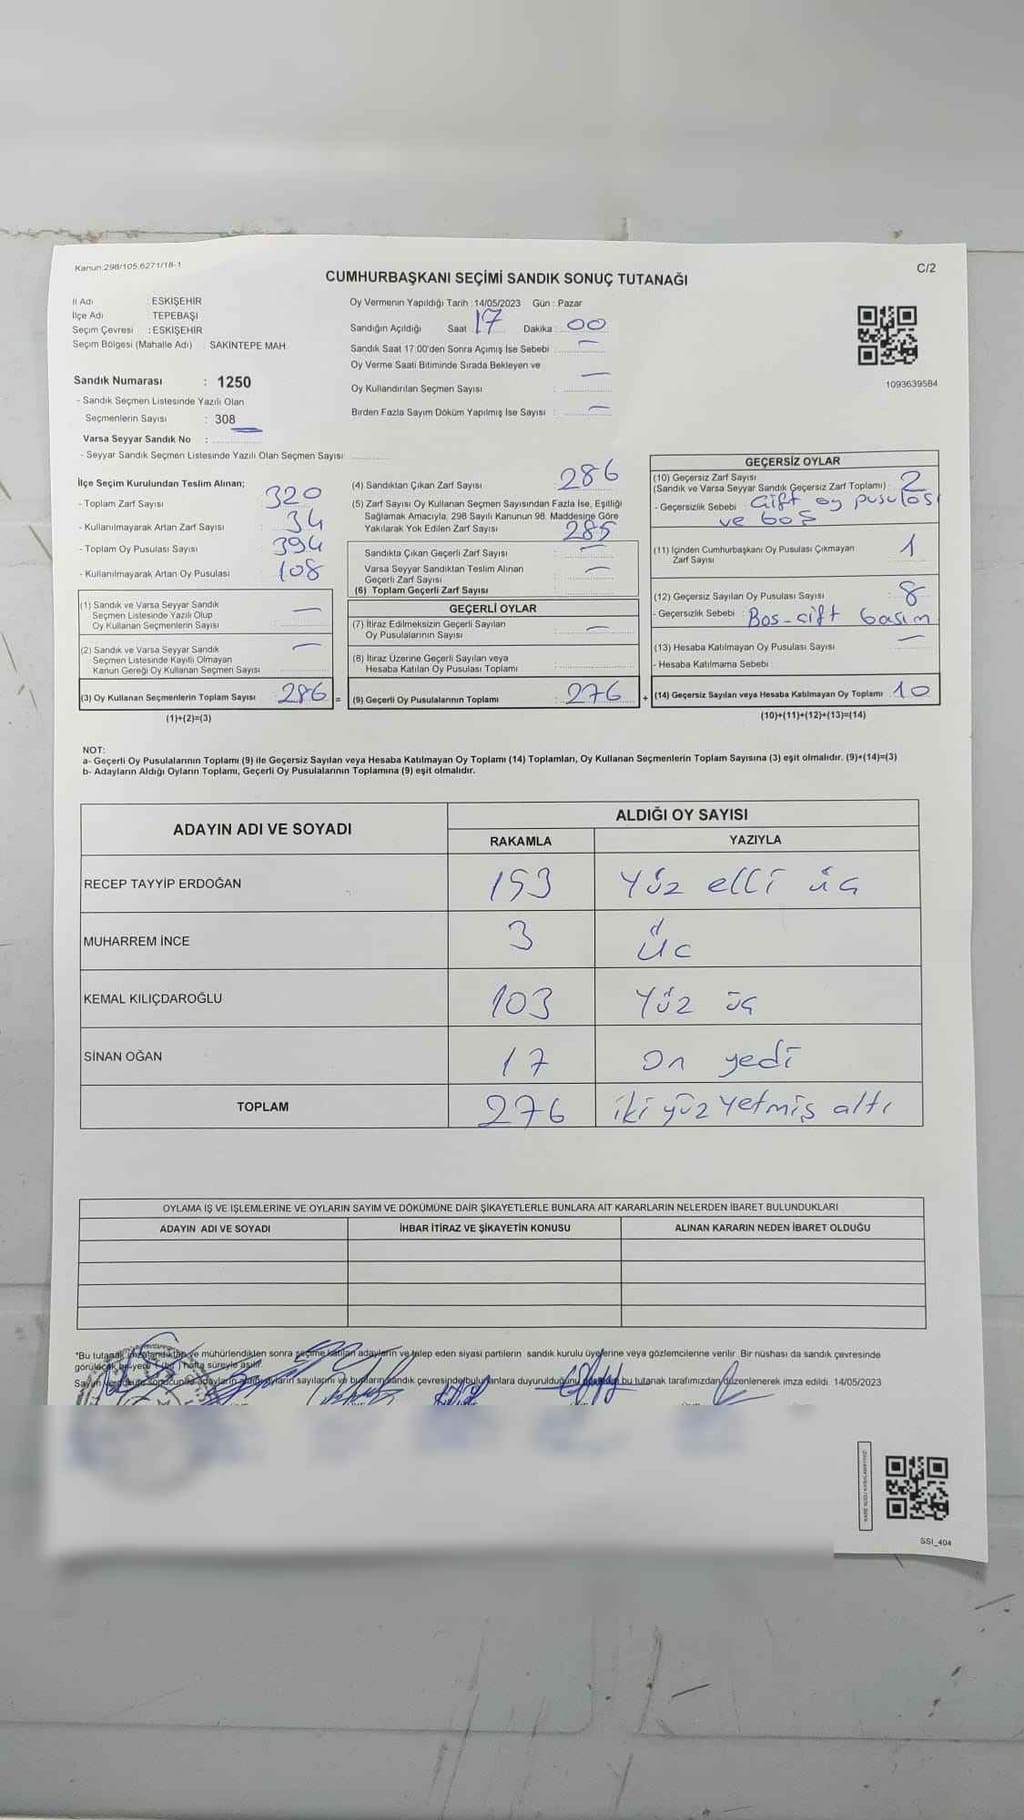 Kanun:298/105 6271/18-1
C/2
CUMHURBAŞKANI SEÇİMİ SANDIK SONUÇ TUTANAĞI
İl Adı : ESKİŞEHİR
İlçe Adı : TEPEBAŞI
Seçim Çevresi : ESKİŞEHİR
Seçim Bölgesi (Mahalle Adı) : SAKİNTEPE MAH.
Sandık Numarası : 1250
- Sandık Seçmen Listesinde Yazılı Olan
Seçmenlerin Sayısı : 308
Varsa Seyyar Sandık No :
- Seyyar Sandık Seçmen Listesinde Yazılı Olan Seçmen Sayısı:
Oy Vermenin Yapıldığı Tarih : 14/05/2023 Gün : Pazar
Sandığın Açıldığı Saat 17 Dakika : 00
Sandık Saat 17:00'den Sonra Açımış İse Sebebi : -
Oy Verme Saati Bitiminde Sırada Bekleyen ve
Oy Kullandırılan Seçmen Sayısı : -
Birden Fazla Sayım Döküm Yapılmış İse Sayısı : -
1093639584
İlçe Seçim Kurulundan Teslim Alınan;
- Toplam Zarf Sayısı : 320
- Kullanılmayarak Artan Zarf Sayısı : 34
- Toplam Oy Pusulası Sayısı : 394
- Kullanılmayarak Artan Oy Pusulası : 108
(1) Sandık ve Varsa Seyyar Sandık
Seçmen Listesinde Yazılı Olup
Oy Kullanan Seçmenlerin Sayısı : -
(2) Sandık ve Varsa Seyyar Sandık
Seçmen Listesinde Kayıtlı Olmayan
Kanun Gereği Oy Kullanan Seçmen Sayısı : -
(3) Oy Kullanan Seçmenlerin Toplam Sayısı : 286 =
(1)+(2)=(3)
(4) Sandıktan Çıkan Zarf Sayısı : 286
(5) Zarf Sayısı Oy Kullanan Seçmen Sayısından Fazla İse, Eşitliği
Sağlamak Amacıyla, 298 Sayılı Kanunun 98. Maddesine Göre
Yakılarak Yok Edilen Zarf Sayısı : 285
Sandıkta Çıkan Geçerli Zarf Sayısı : -
Varsa Seyyar Sandıktan Teslim Alınan
Geçerli Zarf Sayısı : -
(6) Toplam Geçerli Zarf Sayısı :
GEÇERLİ OYLAR
(7) İtiraz Edilmeksizin Geçerli Sayılan
Oy Pusulalarının Sayısı : -
(8) İtiraz Üzerine Geçerli Sayılan veya
Hesaba Katılan Oy Pusulası Toplamı :
(9) Geçerli Oy Pusulalarının Toplamı : 276 +
GEÇERSİZ OYLAR
(10) Geçersiz Zarf Sayısı
(Sandık ve Varsa Seyyar Sandık Geçersiz Zarf Toplamı) : 2
- Geçersizlik Sebebi : Çift oy pusulası
ve boş
(11) İçinden Cumhurbaşkanı Oy Pusulası Çıkmayan
Zarf Sayısı : 1
(12) Geçersiz Sayılan Oy Pusulası Sayısı : 8
- Geçersizlik Sebebi : Bos-çift basım
(13) Hesaba Katılmayan Oy Pusulası Sayısı : -
- Hesaba Katılmama Sebebi
(14) Geçersiz Sayılan veya Hesaba Katılmayan Oy Toplamı : 10
(10)+(11)+(12)+(13)=(14)
NOT:
a- Geçerli Oy Pusulalarının Toplamı (9) ile Geçersiz Sayılan veya Hesaba Katılmayan Oy Toplamı (14) Toplamları, Oy Kullanan Seçmenlerin Toplam Sayısına (3) eşit olmalıdır. (9)+(14)=(3)
b- Adayların Aldığı Oyların Toplamı, Geçerli Oy Pusulalarının Toplamına (9) eşit olmalıdır.
ADAYIN ADI VE SOYADI
ALDIĞI OY SAYISI
RAKAMLA YAZIYLA
RECEP TAYYİP ERDOĞAN 153 Yüz elli üç
MUHARREM İNCE 3 üc
KEMAL KILIÇDAROĞLU 103 Yüz üç
SİNAN OĞAN 17 on yedi
TOPLAM 276 iki yüz yetmiş altı
OYLAMA İŞ VE İŞLEMLERİNE VE OYLARIN SAYIM VE DÖKÜMÜNE DAİR ŞİKAYETLERLE BUNLARA AİT KARARLARIN NELERDEN İBARET BULUNDUKLARI
ADAYIN ADI VE SOYADI İHBAR İTİRAZ VE ŞİKAYETİN KONUSU ALINAN KARARIN NEDEN İBARET OLDUĞU
*Bu tutanak imzalandıktan ve mühürlendikten sonra seçime katılan adayların ve talep eden siyasi partilerin sandık kurulu üyelerine veya gözlemcilerine verilir. Bir nüshası da sandık çevresinde
görülecek bir yere 1 (bir) hafta süreyle asılır.
Sayım ve döküm sonucunda adayların aldığı oyların sayılarını ve bunların sandık çevresinde bulunanlara duyurulduğunu bu tutanak tarafımızdan düzenlenerek imza edildi. 14/05/2023
SSİ_404